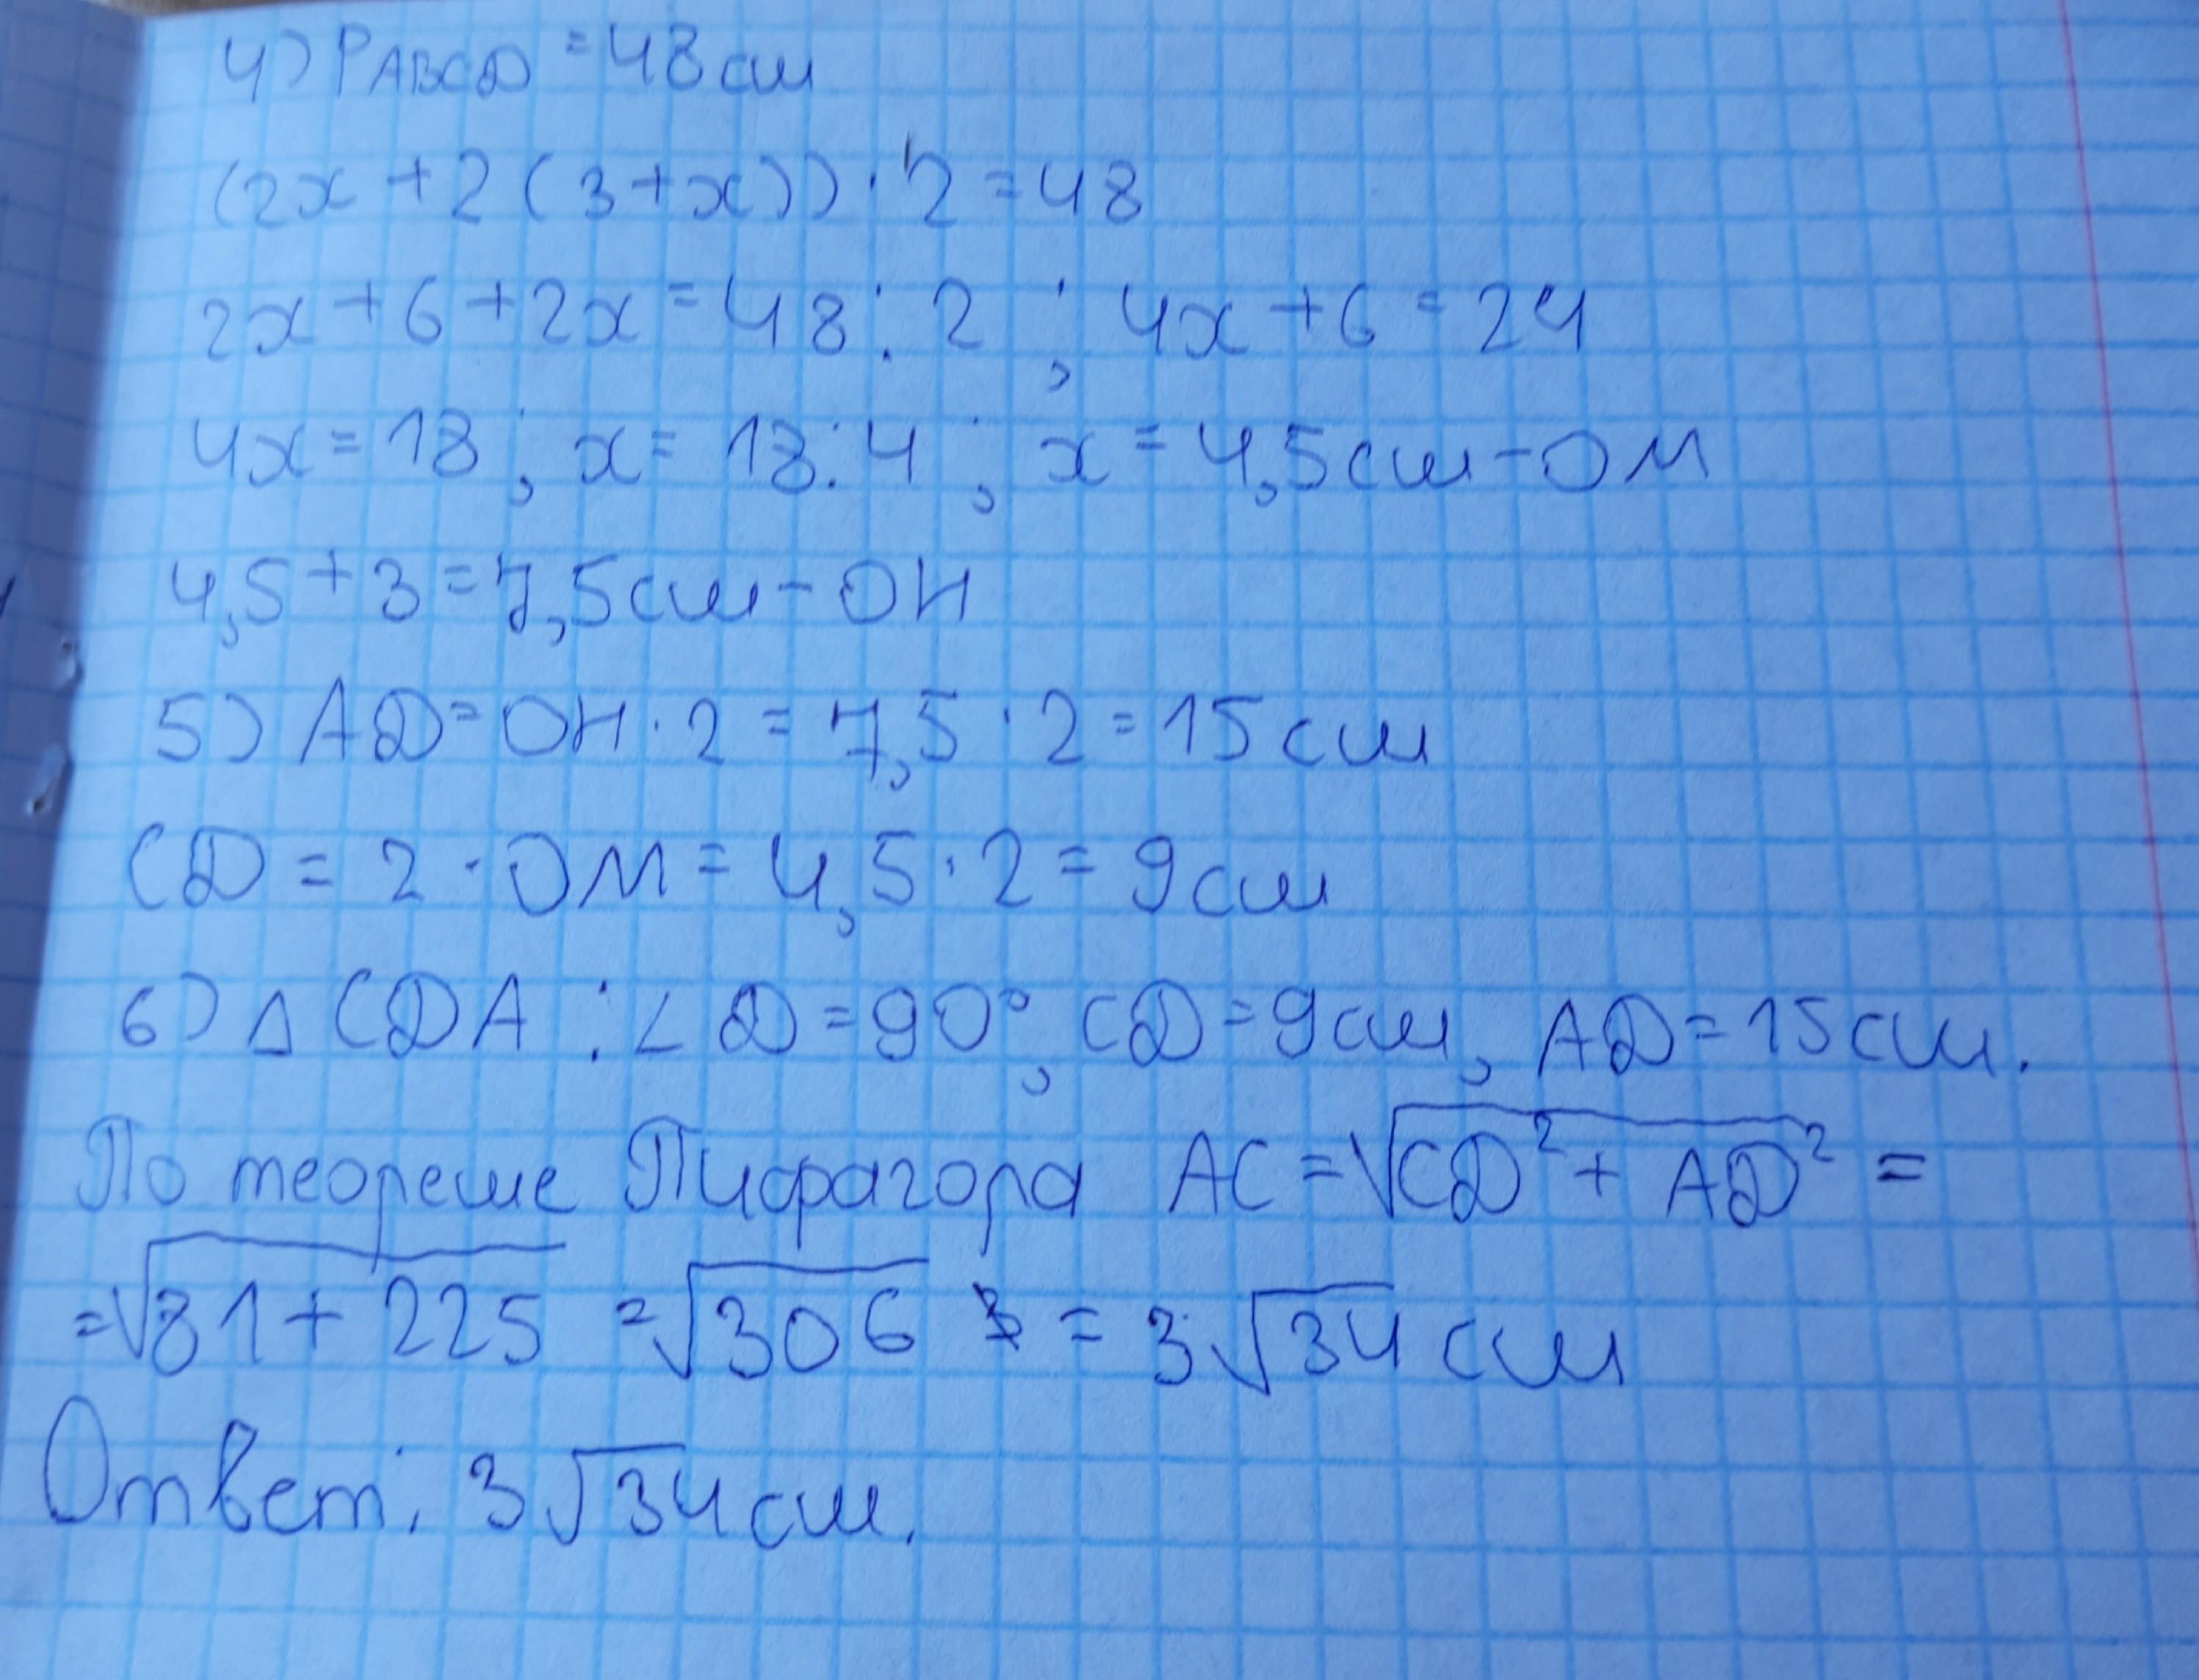 4) PABCD = 48 см
(2x + 2(3+x))·2 = 48
2x + 6 + 2x = 48 : 2 ; 4x + 6 = 24
4x = 18 ; x = 18 : 4 ; x = 4,5 см - OM
4,5 + 3 = 7,5 см - OH
5) AD = OH · 2 = 7,5 · 2 = 15 см
CD = 2 · OM = 4,5 · 2 = 9 см
6) Δ CDA : ∠ D = 90°, CD = 9 см, AD = 15 см.
По теореме Пифагора AC = √CD² + AD² =
= √81 + 225 = √306 = 3√34 см
Ответ: 3√34 см.